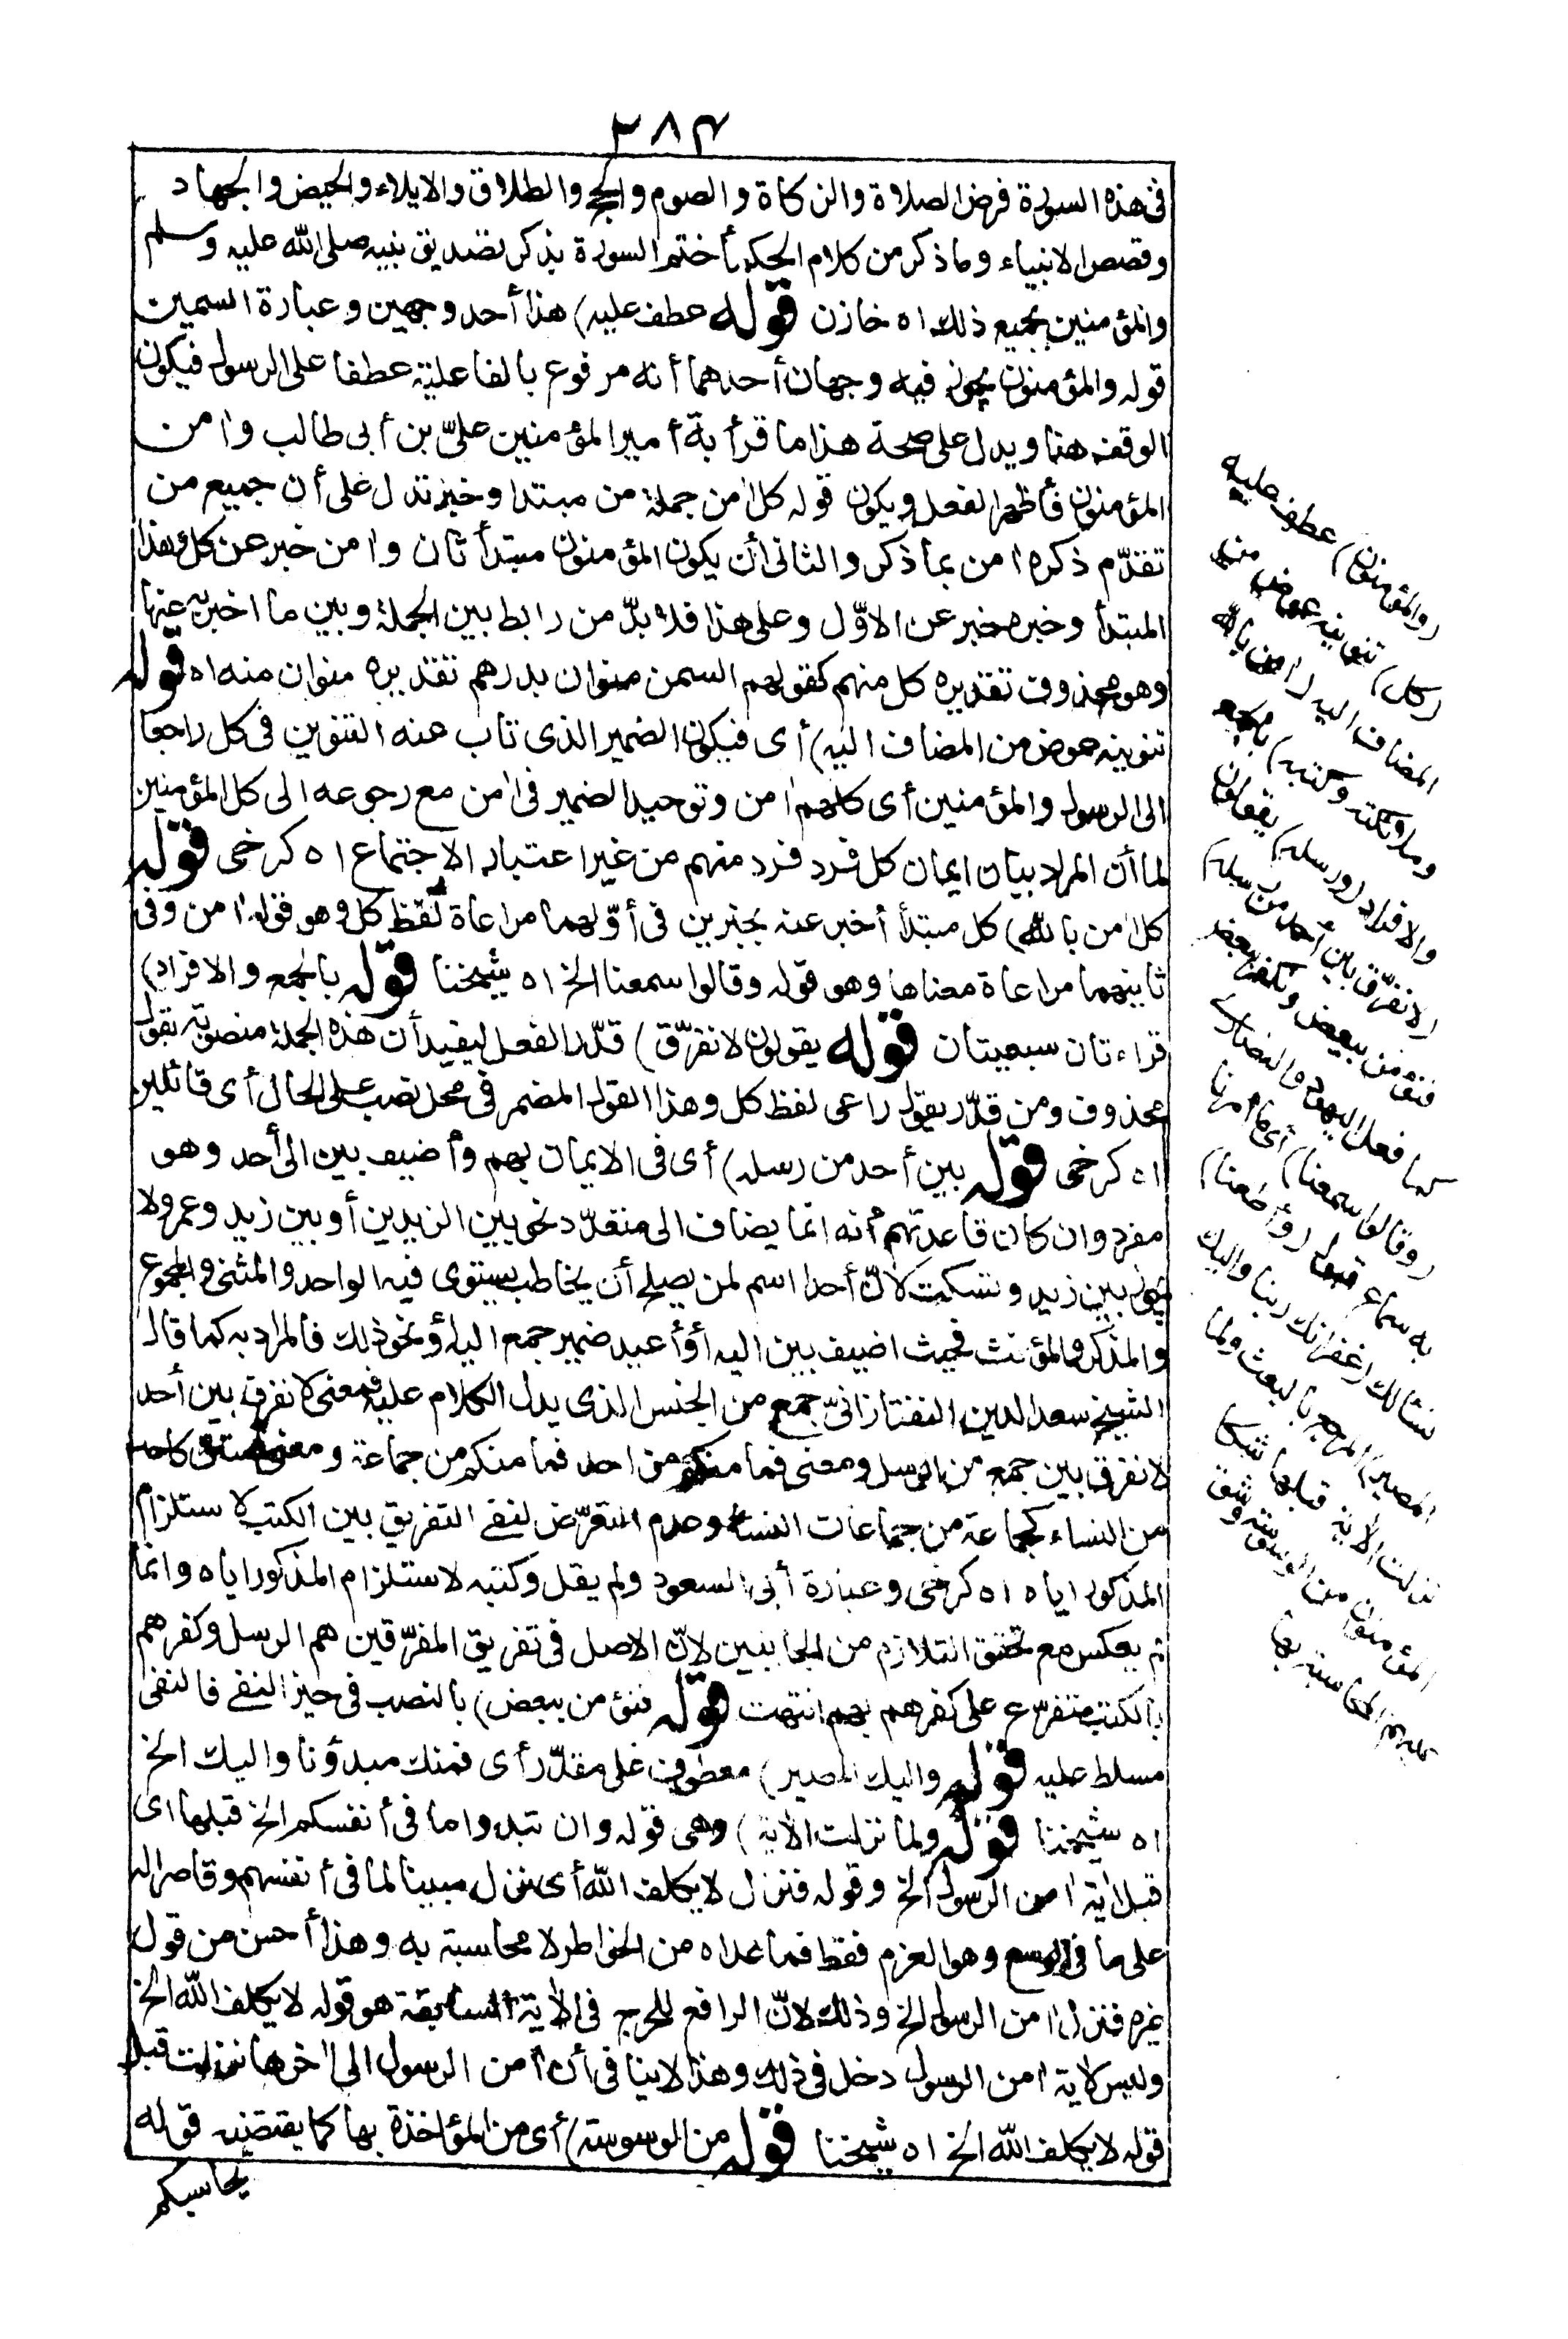 ٢٨٤
فى هذه السورة فرض الصلاة والزكاة والصوم والحج والطلاق والايلاء والحيض والجهاد
وقصص الانبياء وما ذكر من كلام الحكماء ختم السورة بذكر تصديق نبيه صلى الله عليه وسلم
والمؤمنين بجميع ذلك اه خازن قوله عطف عليه) هذا أحد وجهين وعبارة السمين
قوله والمؤمنون يجوز فيه وجهان أحدهما أنه مرفوع بالفاعلية عطفا على الرسول فيكون
الوقف هنا ويدل على صحة هذا ما قرأ به أمير المؤمنين علىّ بن أبى طالب وامن
المؤمنون فأظهر الفعل ويكون قوله كل امن جملة من مبتدا وخبر تدل على أن جميع من
تقدّم ذكره امن بما ذكر والثانى أن يكون المؤمنون مبتدأ وكل مبتدأ ثان وامن خبر عن كل وهذا
المبتدأ وخبره خبر عن الاوّل وعلى هذا فلا بدّ من رابط بين الجملة وبين ما اخبر به عنها
وهو محذوف تقديره كل منهم كقولهم السمن منوان بدرهم تقديره منوان منه اه قوله
تنوينه عوض من المضاف اليه) أى فيكون الضمير الذى ناب عنه التنوين فى كل راجعا
الى الرسول والمؤمنين أى كلهم امن وتوحيد الضمير فى امن مع رجوعه الى كل المؤمنين
لما أن المراد بيان ايمان كل فرد فرد منهم من غير اعتبار الاجتماع اه كرخى قوله
كل امن بالله) كل مبتدأ أخبر عنه بخبرين فى أوّلهما مراعاة لفظ كل وهو قوله امن وفى
ثانيهما مراعاة معناها وهو قوله وقالوا سمعنا الخ اه شيخنا قوله بالجمع والافراد)
قراءتان سبعيتان قوله يقولون لا نفرّق) قدّر الفعل ليفيد أن هذه الجملة منصوبة بقول
محذوف ومن قدّر يقول راعى لفظ كل وهذا القول المضمر فى محل نصب على الحال أى قائلين
اه كرخى قوله بين أحد من رسله) أى فى الايمان بهم وأضيف بين الى أحد وهو
مفرد وان كان قاعدتهم أنه انما يضاف الى متعدّد نحو بين الزيدين أو بين زيد وعمرو ولا
يجوز بين زيد وتسكت لانّ أحدا اسم لمن يصلح أن يخاطب يستوى فيه الواحد والمثنى والمجموع
والمذكر والمؤنث فحيث اضيف بين اليه أو أعيد ضمير جمع اليه أو نحو ذلك فالمراد به كما قال
الشيخ سعد الدين التفتازانىّ جمع من الجنس الذى يدل الكلام عليه فمعنى لا نفرق بين أحد
لا نفرق بين جمع من الرسل ومعنى فما منكم من احد فما منكم من جماعة ومعنى لستن كاحد
من النساء كجماعة من جماعات النساء وعدم التعرّض لنفى التفريق بين الكتب لاستلزام
المذكور اياه اه كرخى وعبارة أبى السعود ولم يقل وكتبه لاستلزام المذكور اياه وانما
لم يعكس مع تحقق التلازم من الجانبين لانّ الاصل فى تفريق المفرّقين هم الرسل وكفرهم
بالكتب متفرّع على كفرهم بهم انتهت قوله فنؤمن ببعض) بالنصب فى حيز النفى فالنفى
مسلط عليه قوله واليك المصير) معطوف على مقدّر أى فمنك مبدؤنا واليك الخ
اه شيخنا قوله ولما نزلت الاية) وهى قوله وان تبدوا ما فى أنفسكم الخ قبلها اى
قبل اية امن الرسول الخ وقوله فنزل لا يكلف الله أى نزل مبينا لما فى أنفسهم وقاصرا له
على ما فى الوسع وهو العزم فقط فما عداه من الخواطر لا محاسبة به وهذا أحسن من قول
غيره فنزل امن الرسول الخ وذلك لانّ الرافع للحرج فى الاية السابقة هو قوله لا يكلف الله الخ
وليس لاية امن الرسول دخل فى ذلك وهذا لا ينافى أن امن الرسول الى اخرها نزلت قبل
قوله لا يكلف الله الخ اه شيخنا قوله من الوسوسة) أى من المؤاخذة بها كما يقتضيه قوله
يحاسبكم
(والمؤمنون) عطف عليه
(كل) تنوينه عوض من
المضاف اليه (امن بالله
وملائكته وكتبه) بالجمع
والافراد (ورسله) يقولون
(لا نفرّق بين أحد من رسله)
فنؤمن ببعض ونكفر ببعض
كما فعل اليهود والنصارى
(وقالوا سمعنا) أى ما أمرنا
به سماع قبول (وأطعنا)
نسألك (غفرانك ربنا واليك
المصير) المرجع بالبعث ولما
نزلت الاية قبلها شكا
المؤمنون من الوسوسة وشق
عليهم المحاسبة بها